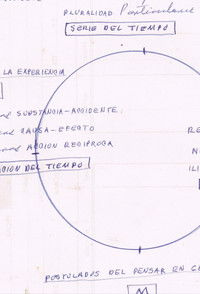 PLURALIDAD Particulares
SERIE DEL TIEMPO
LA EXPERIENCIA
SUBSTANCIA-ACCIDENTE.
CAUSA-EFECTO
ACCION RECIPROCA
RE
N
CION DEL TIEMPO
ILI
POSTULADOS DEL PENSAR EN GE
M